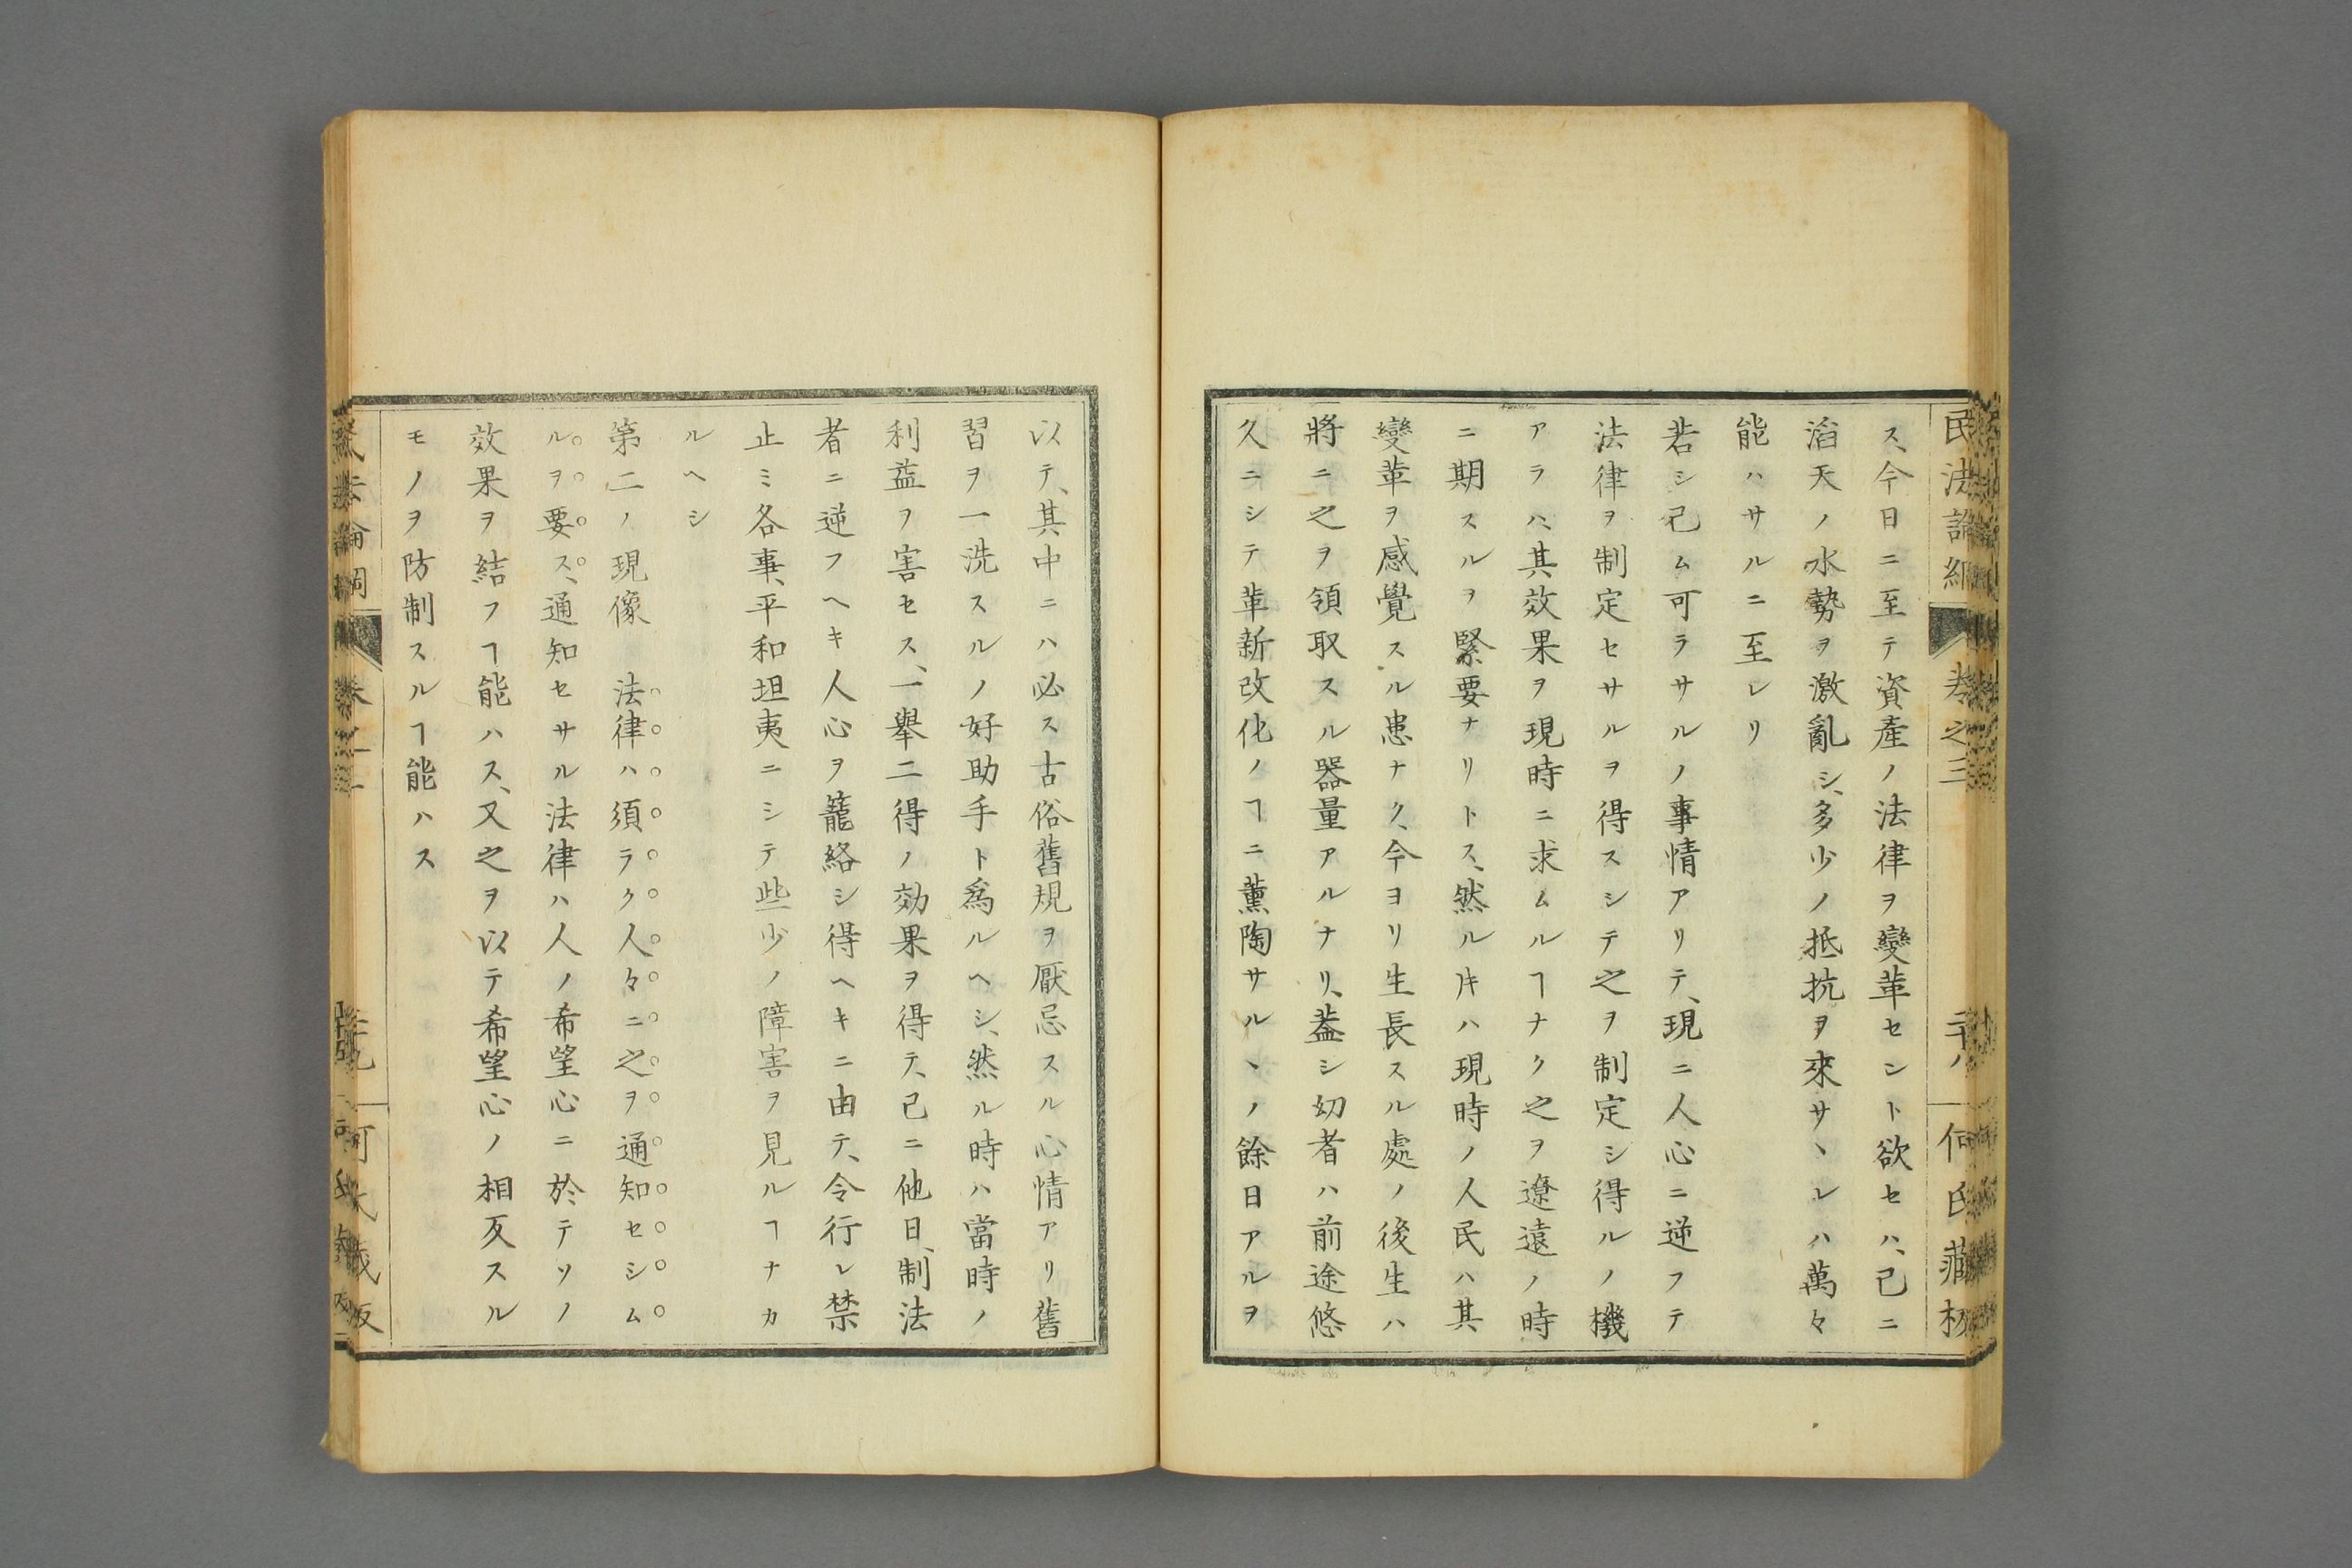 民法論綱
卷之三
何氏藏板
ス、今日ニ至テ資産ノ法律ヲ變革セント欲セハ、已ニ
滔天ノ水勢ヲ激亂シ、多少ノ抵抗ヲ來サヽレハ萬々
能ハサルニ至レリ
若シ已ム可ラサルノ事情アリテ、現ニ人心ニ逆フテ
法律ヲ制定セサルヲ得スシテ之ヲ制定シ得ルノ機
アラハ、其效果ヲ現時ニ求ムルヿナク之ヲ遼遠ノ時
ニ期スルヲ緊要ナリトス、然ル𪜈ハ現時ノ人民ハ其
變革ヲ感覺スル患ナク、今ヨリ生長スル處ノ後生ハ
將ニ之ヲ領取スル器量アルナリ、葢シ幼者ハ前途悠
久ニシテ革新改化ノヿニ薫陶サルヽノ餘日アルヲ
以テ、其中ニハ必ス古俗舊規ヲ厭忌スル心情アリ舊
習ヲ一洗スルノ好助手ト爲ルヘシ、然ル時ハ當時ノ
利益ヲ害セス、一擧二得ノ効果ヲ得テ、已ニ他日、制法
者ニ逆フヘキ人心ヲ籠絡シ得ヘキニ由テ、令行レ禁
止ミ各事、平和坦夷ニシテ些少ノ障害ヲ見ルヿナカ
ルヘシ
第二ノ現像　法律ハ須ラク人々ニ之ヲ通知セシム
ルヲ要ス、通知セサル法律ハ人ノ希望心ニ於テソノ
效果ヲ結フヿ能ハス、又之ヲ以テ希望心ノ相反スル
モノヲ防制スルヿ能ハス